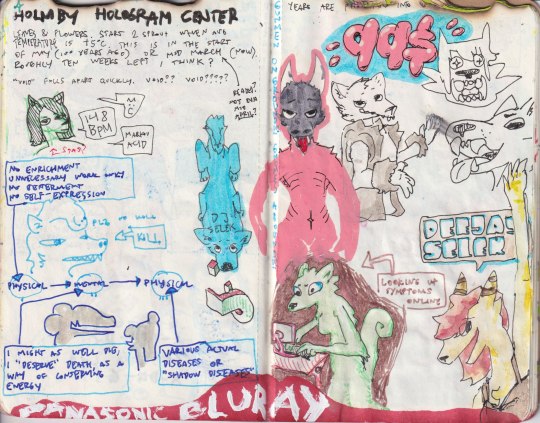 HOLNABY HOLOGRAM CENTER
LEAVES & FLOWERS START 2 SPROUT WHEN AVG
TEMPERATURE IS +5°C. THIS IS IN THE START
OF MAY (100 YEARS AGO) OR MID MARCH (NOW)
ROUGHLY TEN WEEKS LEFT I THINK?
REALLY?
NOT
MID
APRIL?
"VOID" FALLS APART QUICKLY. VOID?? VOID????
148
BPM
MARLOV
ACID
NO ENRICHMENT
UNNECESSARY WORK ONLY
NO DEFERMENT
NO SELF-EXPRESSION
KILL
PHYSICAL
MENTAL
PHYSICAL
I MIGHT AS WELL DIE,
I "DESERVE" DEATH, AS A
WAY OF CONSERVING
ENERGY
VARIOUS ACTUAL
DISEASES OR
"SHADOW DISEASES"
DJ
SELEK
PANASONIC BLURAY
YEARS ARE
INTO
99$
DEEJAY
SELEK
LOOKING UP
SYMPTOMS
ONLINE